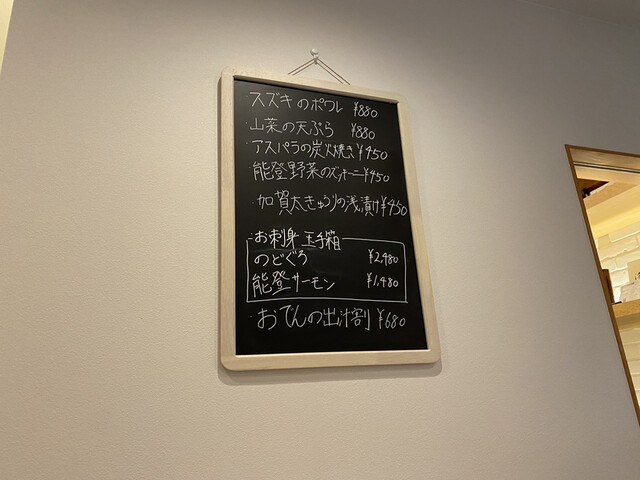 スズキのポワレ ¥880
・山菜の天ぷら ¥880
・アスパラの炭火焼き ¥450
能登野菜のズッキーニ ¥450
・加賀太きゅうりの浅漬け ¥450
・お刺身 玉手箱
のどぐろ ¥2,480
能登サーモン ¥1,480
・おでんの出汁割 ¥680